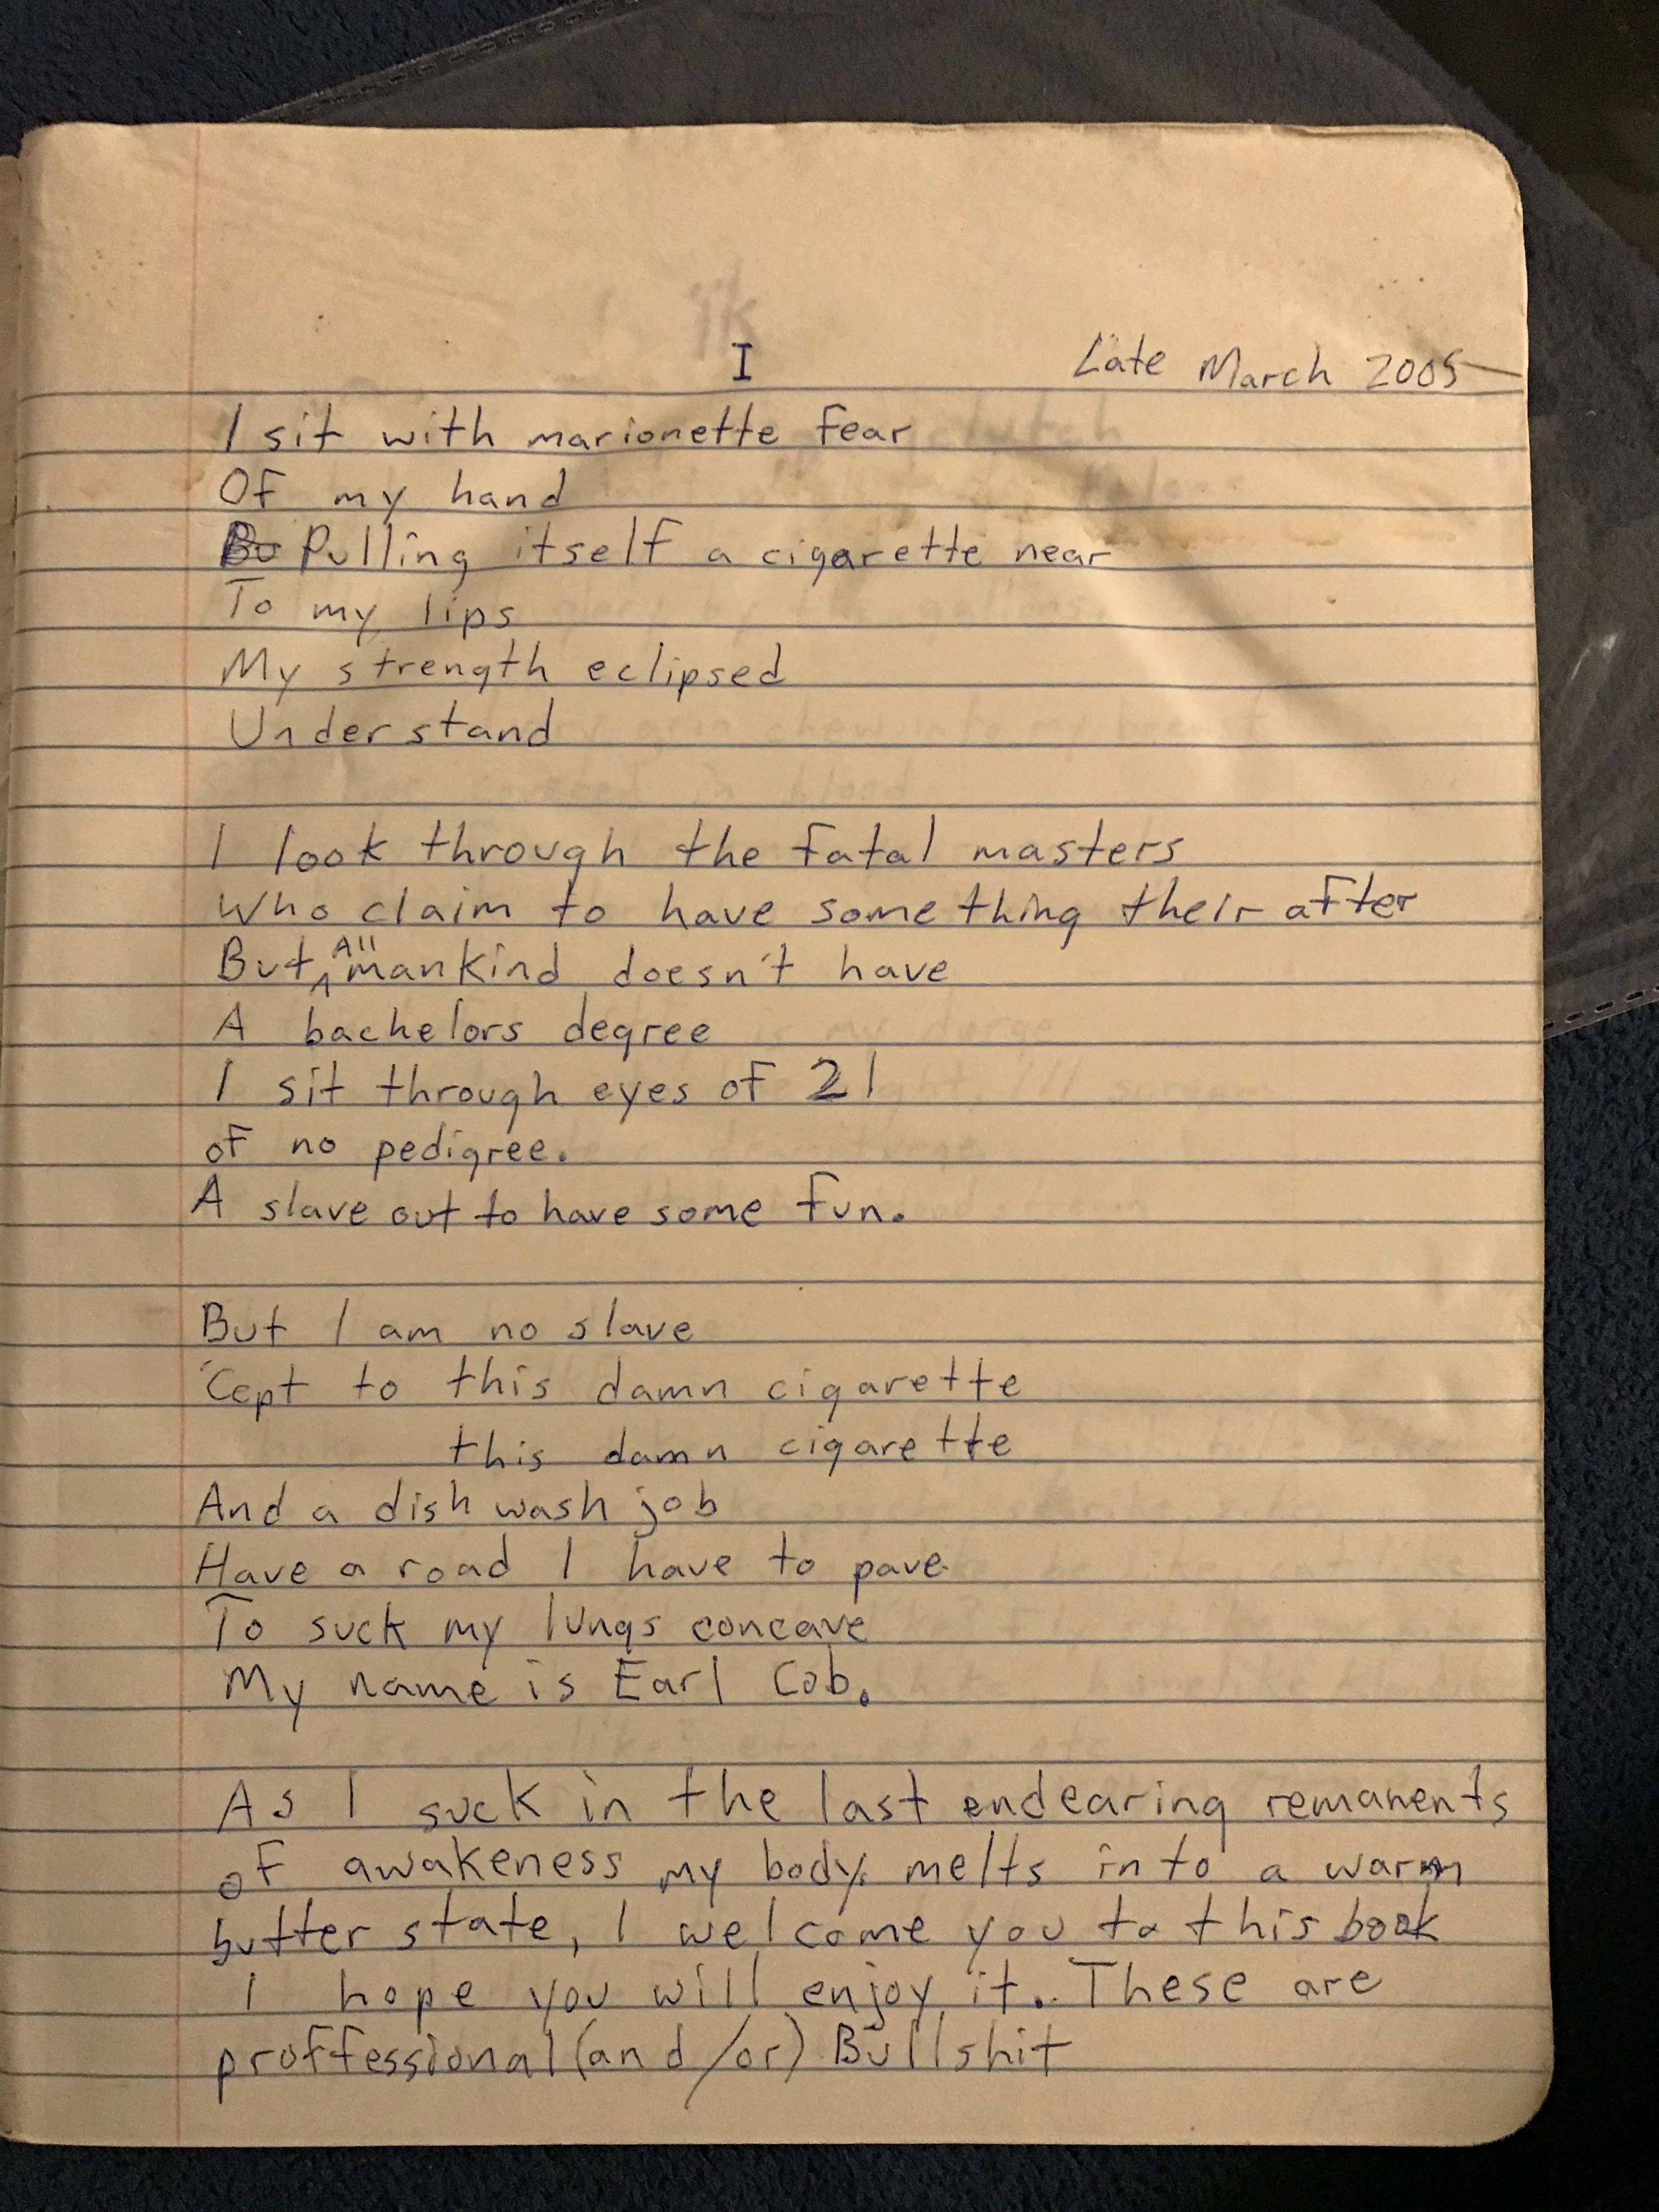 I
Late March 2005
I sit with marionette fear
Of my hand
Pulling itself a cigarette near
To my lips
My strength eclipsed
Understand
I look through the fatal masters
Who claim to have something their after
But All mankind doesn't have
A bachelors degree
I sit through eyes of 21
of no pedigree.
A slave out to have some fun.
But I am no slave
'Cept to this damn cigarette
this damn cigarette
And a dish wash job
Have a road I have to pave
To suck my lungs concave
My name is Earl Cob.
As I suck in the last endearing remanents
of awakeness my body melts into a warm
butter state, I welcome you to this book
I hope you will enjoy it. These are
proffessional (and/or) Bullshit